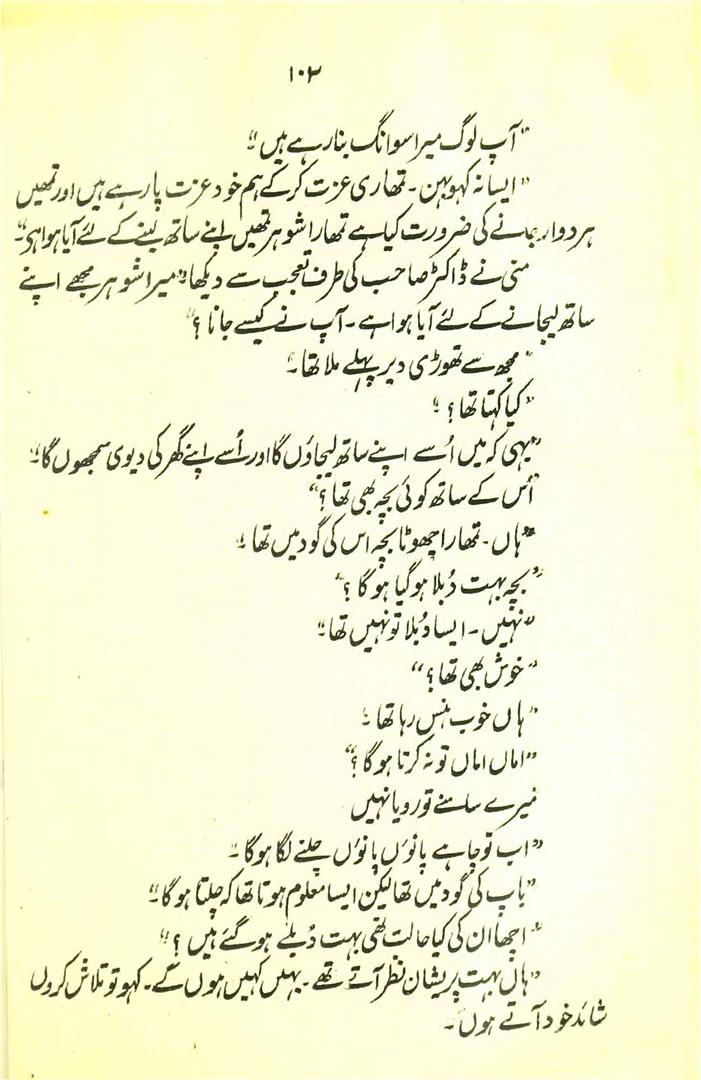 ۱۰۳
"آپ لوگ میرا سوانگ بنا رہے ہیں"
"ایسا نہ کہو بہن۔ تمھاری عزت کرکے ہم خود عزت پا رہے ہیں اور تمھیں
ہردوار جانے کی ضرورت کیا ہے تمھارا شوہر تمھیں اپنے ساتھ لینے کے لئے آیا ہوا ہی"۔
منی نے ڈاکٹر صاحب کی طرف تعجب سے دیکھا: "میرا شوہر مجھے اپنے
ساتھ لیجانے کے لئے آیا ہوا ہے۔ آپ نے کیسے جانا؟"
"مجھ سے تھوڑی دیر پہلے ملا تھا"۔
"کیا کہتا تھا؟"
"یہی کہ میں اُسے اپنے ساتھ لیجاؤں گا اور اُسے اپنے گھر کی دیوی سمجھوں گا"
"اُس کے ساتھ کوئی بچہ بھی تھا؟"
"ہاں۔ تمھارا چھوٹا بچہ اس کی گود میں تھا"
"بچہ بہت دُبلا ہو گیا ہو گا؟"
"نہیں۔ ایسا دُبلا تو نہیں تھا"
"خوش بھی تھا؟"
"ہاں خوب ہنس رہا تھا"
"اماں اماں تو نہ کرتا ہو گا؟"
میرے سامنے تو رویا نہیں
"اب تو چاہے پانوٗں پانوٗں چلنے لگا ہو گا"۔
"باپ کی گود میں تھا لیکن ایسا معلوم ہوتا تھا کہ چلتا ہو گا"
"اچھا ان کی کیا حالت تھی بہت دُبلے ہو گئے ہیں؟"
"ہاں بہت پریشان نظر آتے تھے۔ یہیں کہیں ہوں گے۔ کہو تو تلاش کروں
شائد خود آتے ہوں۔